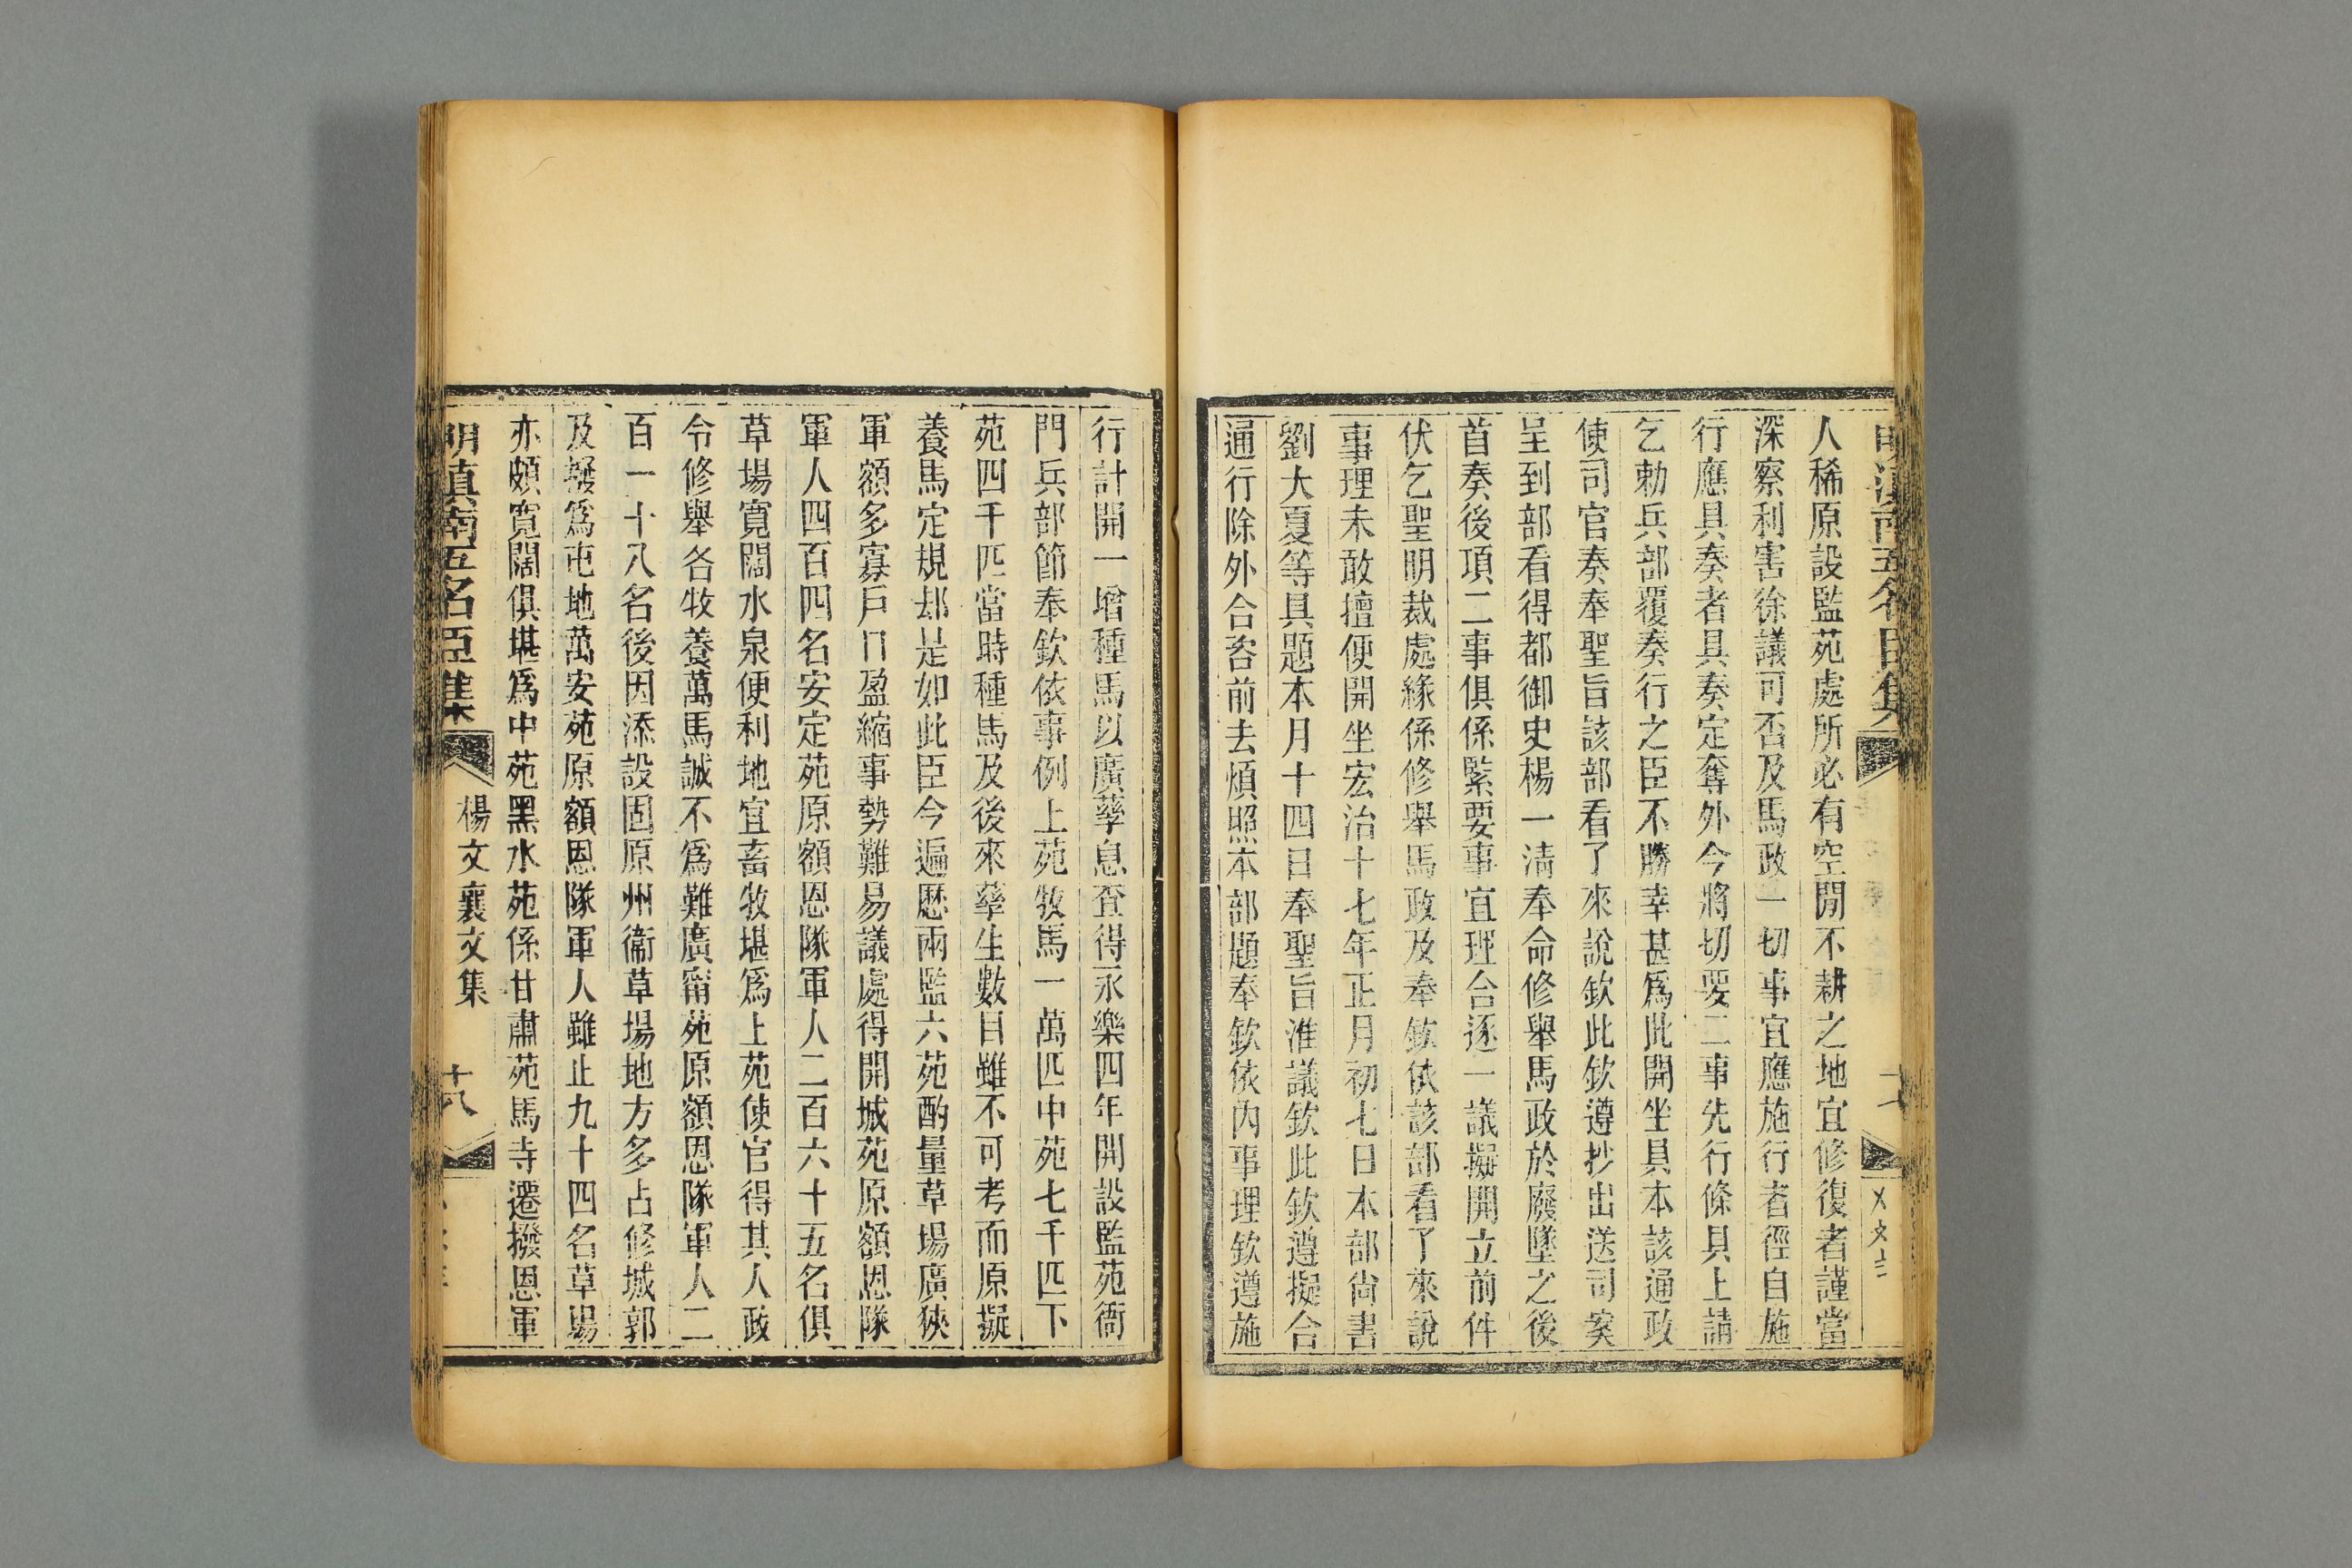 人稀原設監苑處所必有空閒不耕之地宜修復者謹當
深察利害徐議可否及馬政一切事宜應施行者徑自施
行應具奏者具奏定奪外今將切要二事先行條具上請
乞勅兵部覆奏行之臣不勝幸甚爲此開坐具本該通政
使司官奏奉聖旨該部看了來說欽此欽遵抄出送司案
呈到部看得都御史楊一清奉命修舉馬政於廢墜之後
首奏後項二事俱係緊要事宜理合逐一議擬開立前件
伏乞聖明裁處緣係修舉馬政及奉欽依該部看了來說
事理未敢擅便開坐宏治十七年正月初七日本部尙書
劉大夏等具題本月十四日奉聖旨准議欽此欽遵擬合
通行除外合咨前去煩照本部題奉欽依內事理欽遵施
行計開一增種馬以廣孳息查得永樂四年開設監苑衙
門兵部節奉欽依事例上苑牧馬一萬匹中苑七千匹下
苑四千匹當時種馬及後來孳生數目雖不可考而原擬
養馬定規却是如此臣今遍歷兩監六苑酌量草場廣狹
軍額多寡戶口盈縮事勢難易議處得開城苑原額恩隊
軍人四百四名安定苑原額恩隊軍人二百六十五名俱
草場寬闊水泉便利地宜畜牧堪爲上苑使官得其人政
令修舉各牧養萬馬誠不爲難廣甯苑原額恩隊軍人二
百一十八名後因添設固原州衞草場地方多占修城郭
及撥爲屯地萬安苑原額恩隊軍人雖止九十四名草場
亦頗寬闊俱堪爲中苑黑水苑係甘肅苑馬寺遷撥恩軍
明滇南五名臣集 楊文襄文集 十八